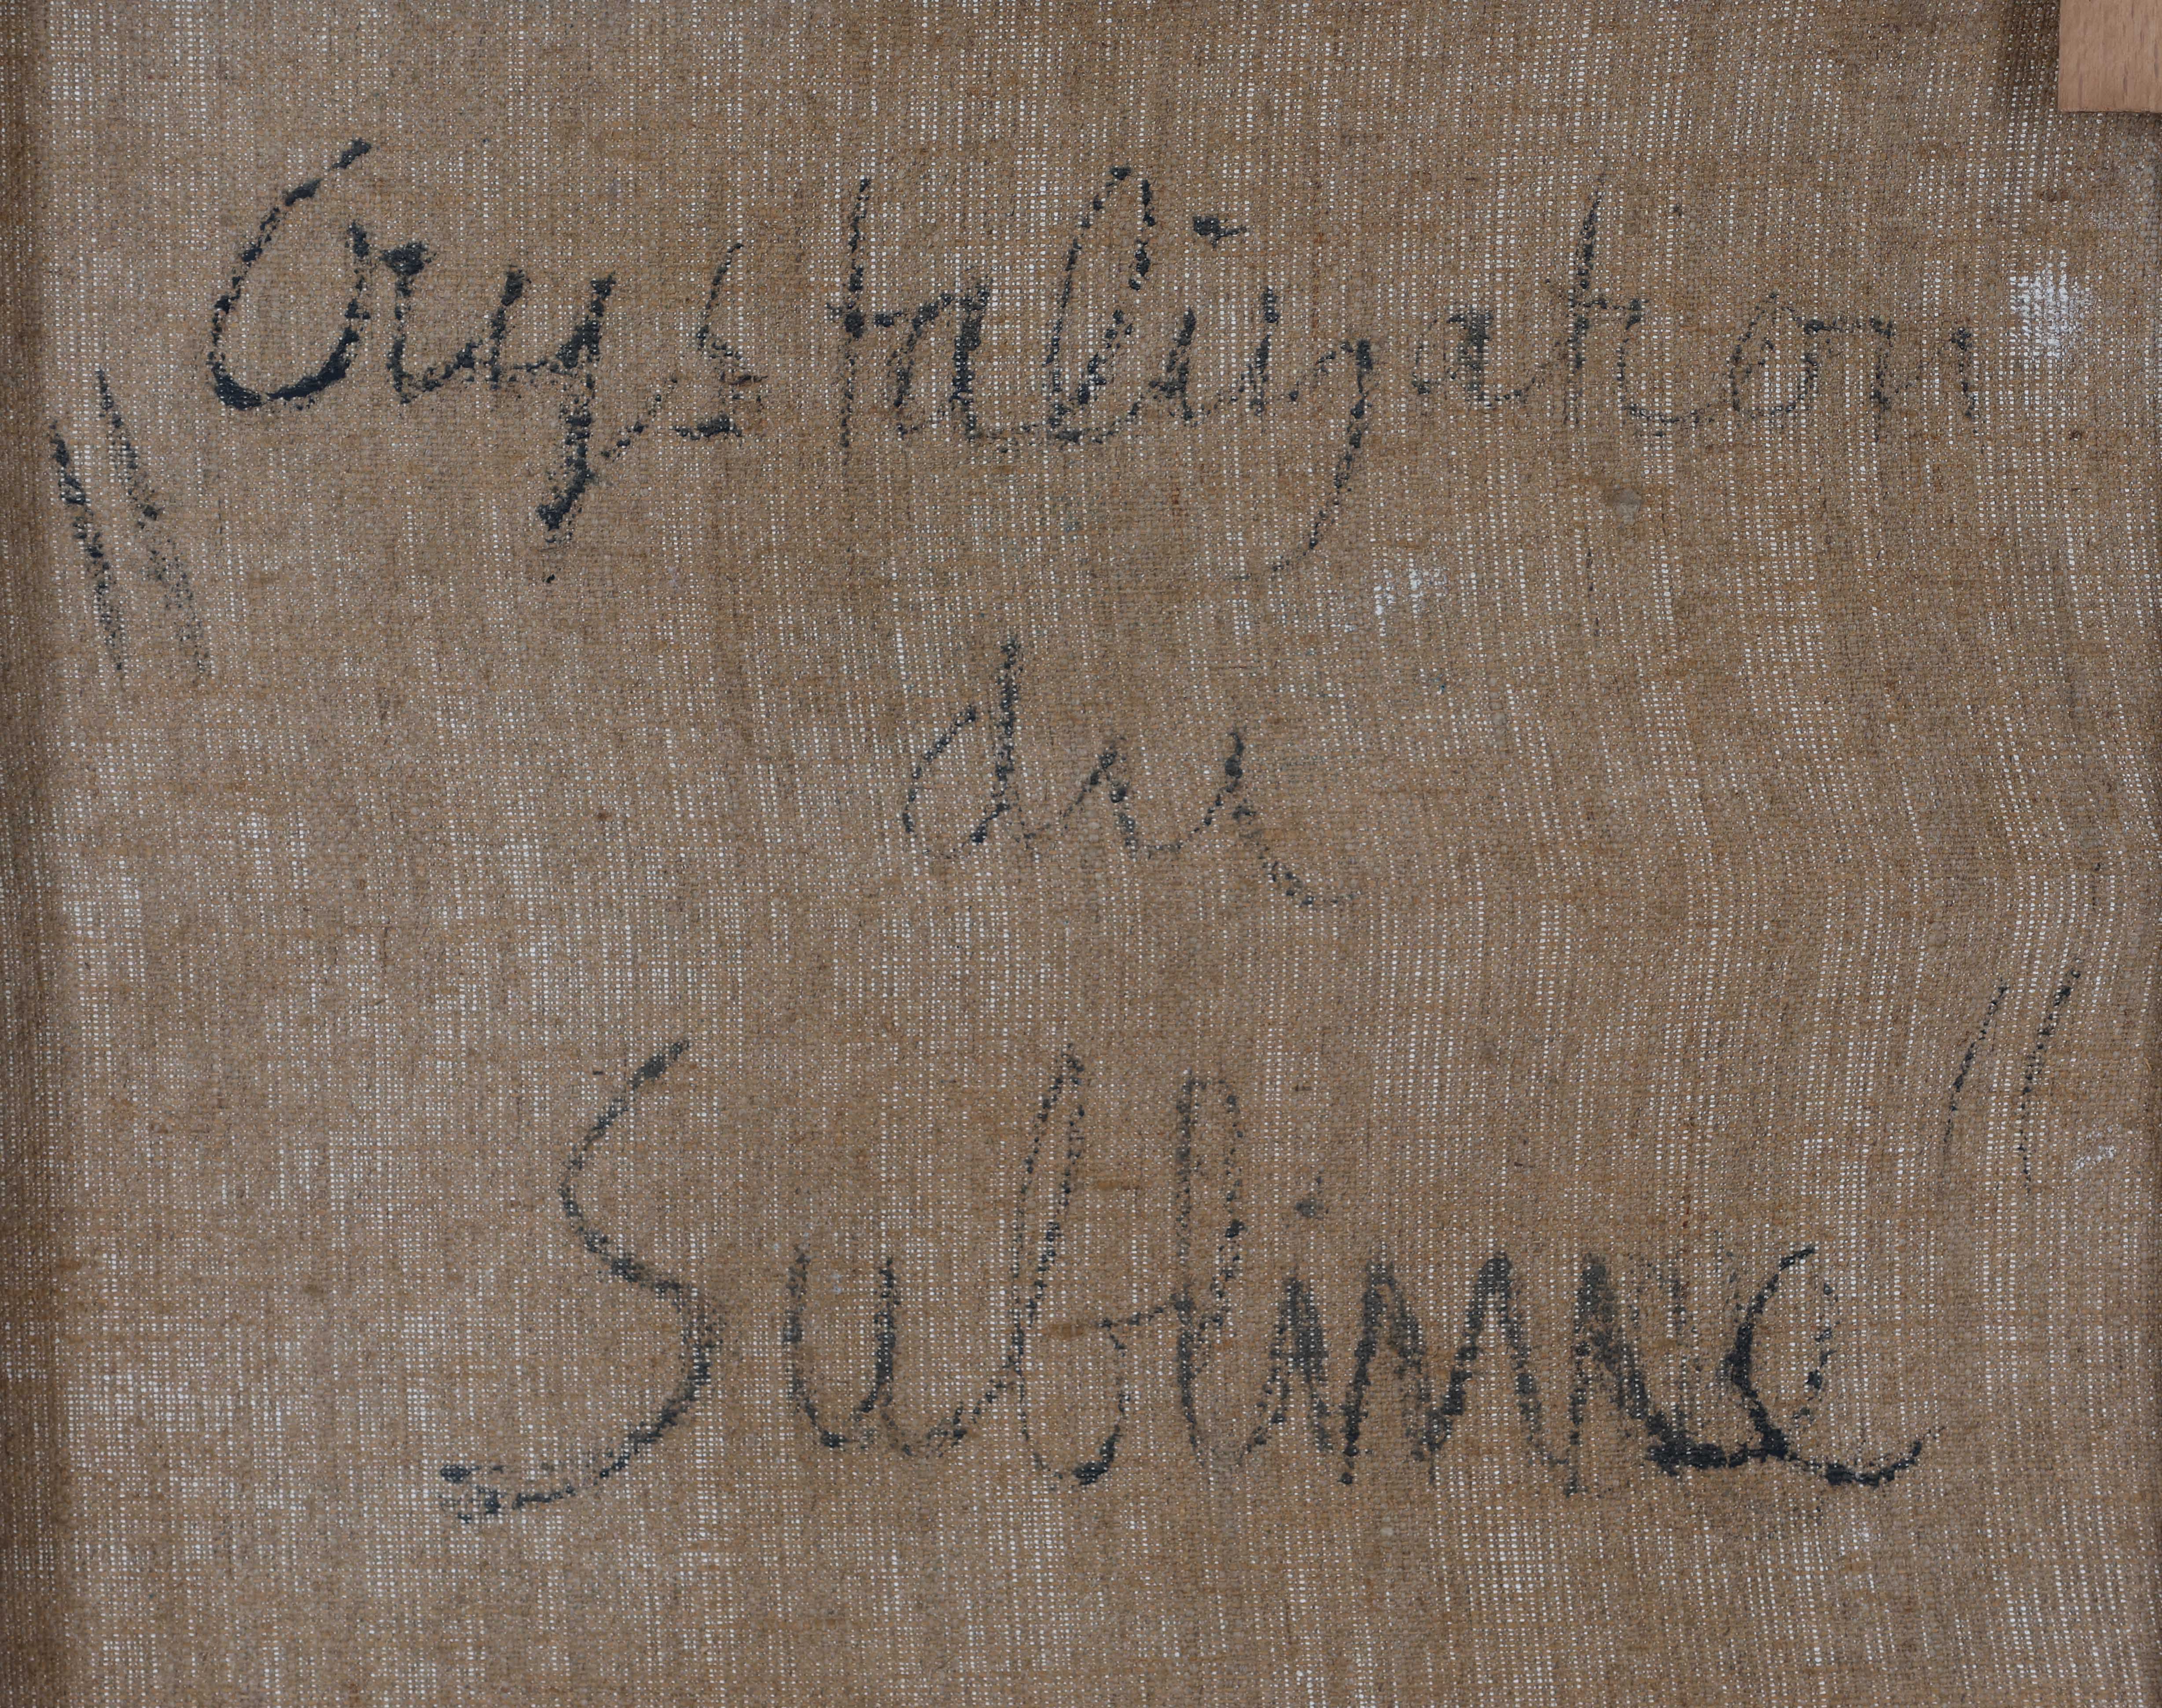 "Crystalizaton
du
Sublime"